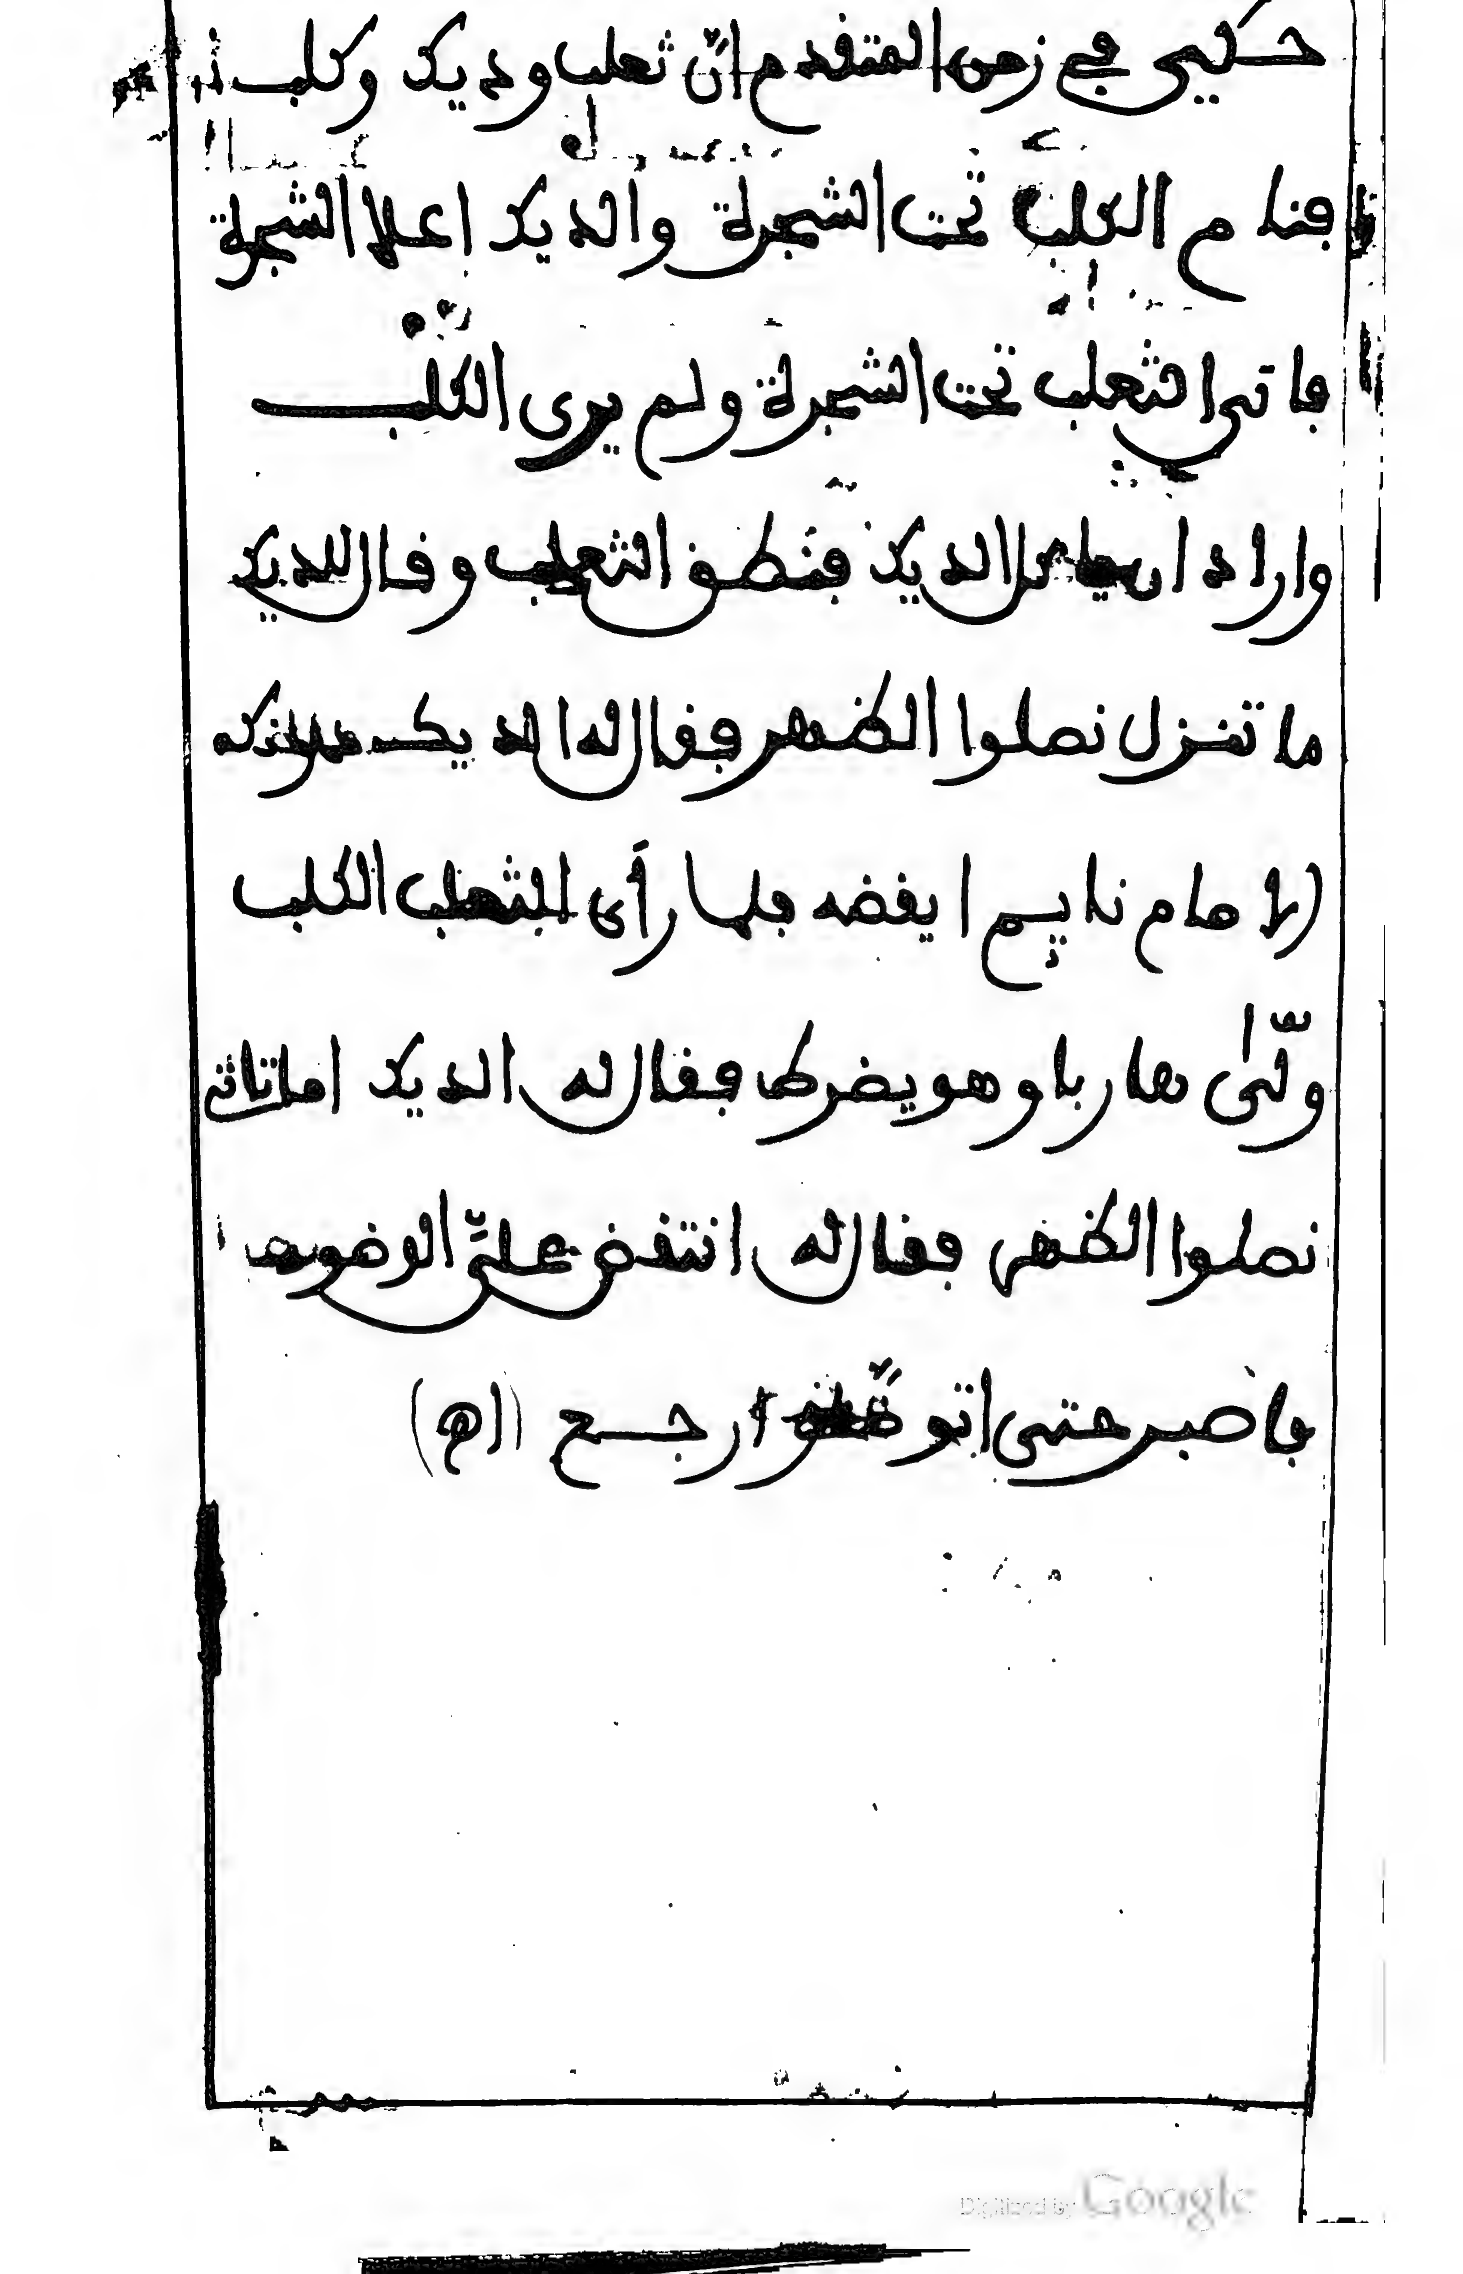 حكيى في زمن المتقدم انّ ثعلب و ديك وكلب
فنام الكلب تحت الشجرة والديك اعلا الشجرة
فاتى الثعلب تحت الشجرة ولم يرى الكلب
واراد ان الديك فنطق الثعلب وقال للديك
ما تنزل نصلوا الظهر فقال له الديك
الامام نايم ايقضه فلما رأى الثعلب الكلب
ولّى هاربا وهو يضرط فقال له الديك اما تاتي
نصلوا الظهر فقال له انتقض عليّ الوضوء
فاصبر حتى اتوضّؤ ارجع (اه)
Digitized by Google